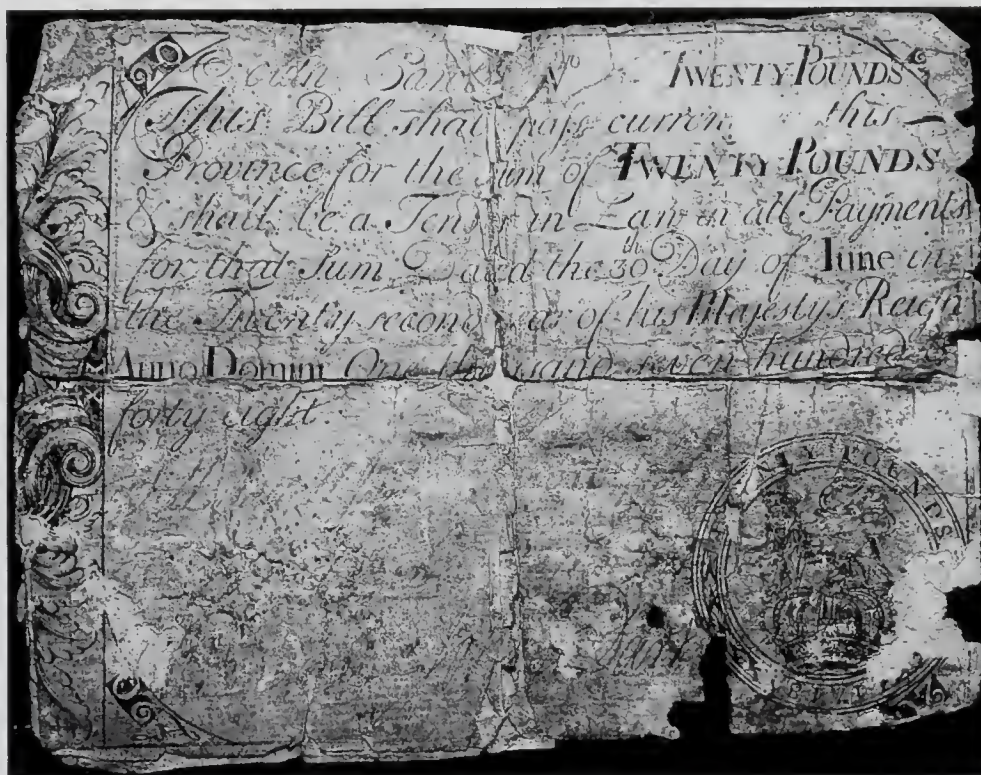 No TWENTY POUNDS
This Bill shal pass curren this
Province for the Sum of TWENTY POUNDS
& shall be a Ten in Law in all Payments
for that Sum Dated the 30th Day of Iune in
the Twenty second of his Majestys Reign
Anno Domini One seven hundred &
forty eight.
TY POUNDS